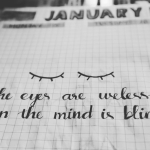 JANUARY
he eyes are useless
n the mind is blin